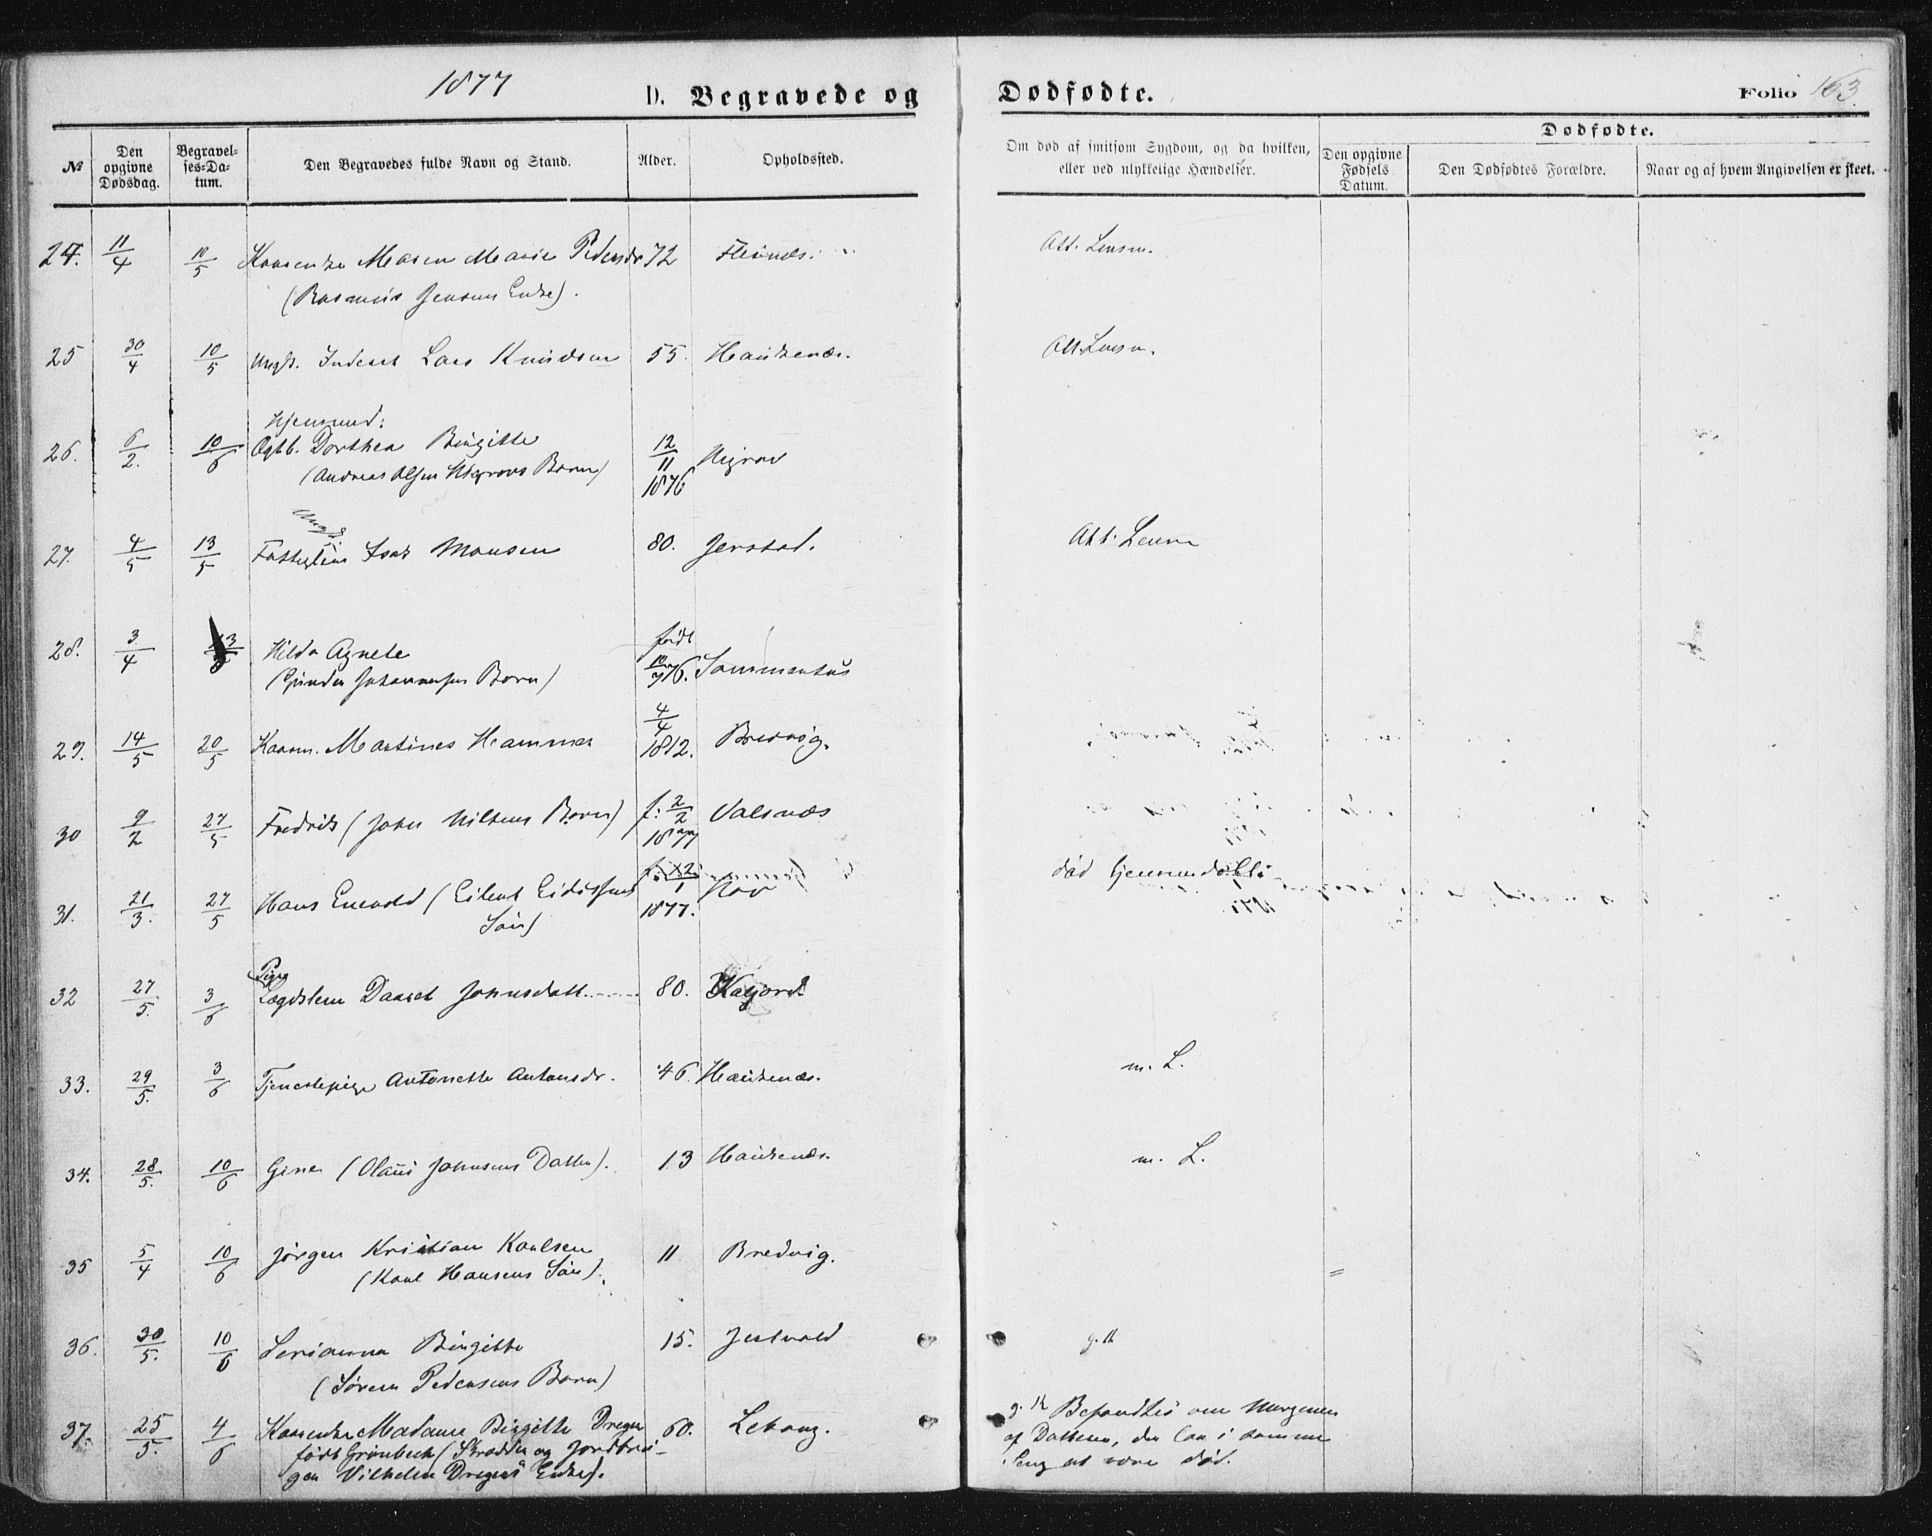 1877
D. Begravede og Dødfødte.
Folio 163.
№
Den opgivne Dødsdag.
Begravelses-Datum.
Den Begravedes fulde Navn og Stand.
Alder.
Opholdssted.
Om død af smitsom Sygdom, og da hvilken, eller ved ulykkelige Hændelser.
Dødfødte.
Den opgivne Fødsels Datum.
Den Dødfødtes Forældre.
Naar og af hvem Angivelsen er skeet.
24. 11/4 10/5 Maren Marie Pedersdr 72 Att. Lensm.
(Rasmus Jensens Enke).
25 30/4 10/5 Ungk. Inderst Lars Knudsen 55. Haukenæs. Att. Lensm.
Hjemmed:
26. 6/2. 10/6 Ægtb. Dorthea Birgitte 12/11 1876
(Andreas Olsen Børn)
Ungk.
27. 4/5 13/5 Isak Monsen 80. Jerstad. Att. Lensm
28. 3/4 Hilda Agnete født 10/7 76.
(Johannesen Børn)
29. 14/5 20/5 Martines Hammer 4/4 1812. Bredvig.
30 9/2 27/5 Fredrik (John Nilsens Børn) f: 2/2 1877 Valsnæs
31. 21/3. 27/5 Hans Enevold (Eilert 1877. Hov død hjemmedøbt
Søn)
Pige
32 27/5. 3/6 Lægdslem Daaret Johnsdatt. 80. Kafjord.
33. 29/5. 3/6 Tjenestepige Antonette Antonsdr. 46. Haukenæs. m. L.
34. 28/5. 10/6 Gine (Olaus Johnsens Datter). 13 Haukenæs. m. L.
35 5/4 10/6 Jørgen Kristian Karlsen 11 Bredvig. =
(Karl Hansens Søn).
36. 30/5. 10/6 Serianna Birgitte 15. Jestvold
(Søren Pedersens Barn)
37. 25/5. 4/6 Madame Birgitte Dreyer 60. Lebang. Befandtes om Morgenen
født Grønbech (Skrædder og Jordbru-
af Datteren, der laa i samme
gen Vilhelm Dreyers Enke).
Seng at være død.